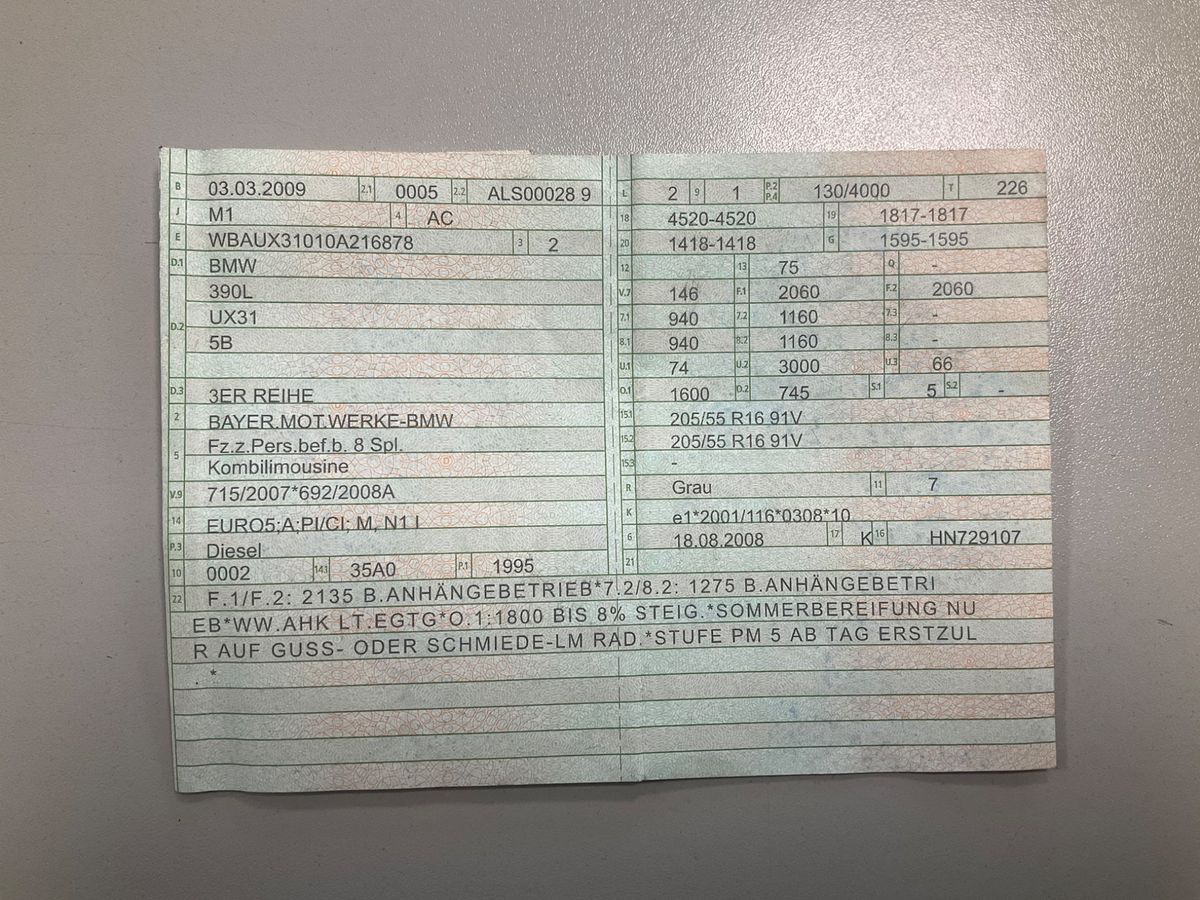 B 03.03.2009 2.1 0005 2.2 ALS00028 9
J M1 4 AC
E WBAUX31010A216878 3 2
D.1 BMW
390L
D.2 UX31
5B
D.3 3ER REIHE
2 BAYER.MOT.WERKE-BMW
5 Fz.z.Pers.bef.b. 8 Spl.
Kombilimousine
V.9 715/2007*692/2008A
14 EURO5;A;PI/CI; M, N1 I
P.3 Diesel
10 0002 14.1 35A0 P.1 1995
L 2 9 1 P.2 P.4 130/4000 T 226
18 4520-4520 19 1817-1817
20 1418-1418 G 1595-1595
12 13 75 Q -
V.7 146 F.1 2060 F.2 2060
7.1 940 7.2 1160 7.3 -
8.1 940 8.2 1160 8.3 -
U.1 74 U.2 3000 U.3 66
O.1 1600 O.2 745 S.1 5 S.2 -
15.1 205/55 R16 91V
15.2 205/55 R16 91V
15.3 -
R Grau 11 7
K e1*2001/116*0308*10
6 18.08.2008 17 K 16 HN729107
21
22 F.1/F.2: 2135 B.ANHÄNGEBETRIEB*7.2/8.2: 1275 B.ANHÄNGEBETRI
EB*WW.AHK LT.EGTG*O.1:1800 BIS 8% STEIG.*SOMMERBEREIFUNG NU
R AUF GUSS- ODER SCHMIEDE-LM RAD.*STUFE PM 5 AB TAG ERSTZUL
.*